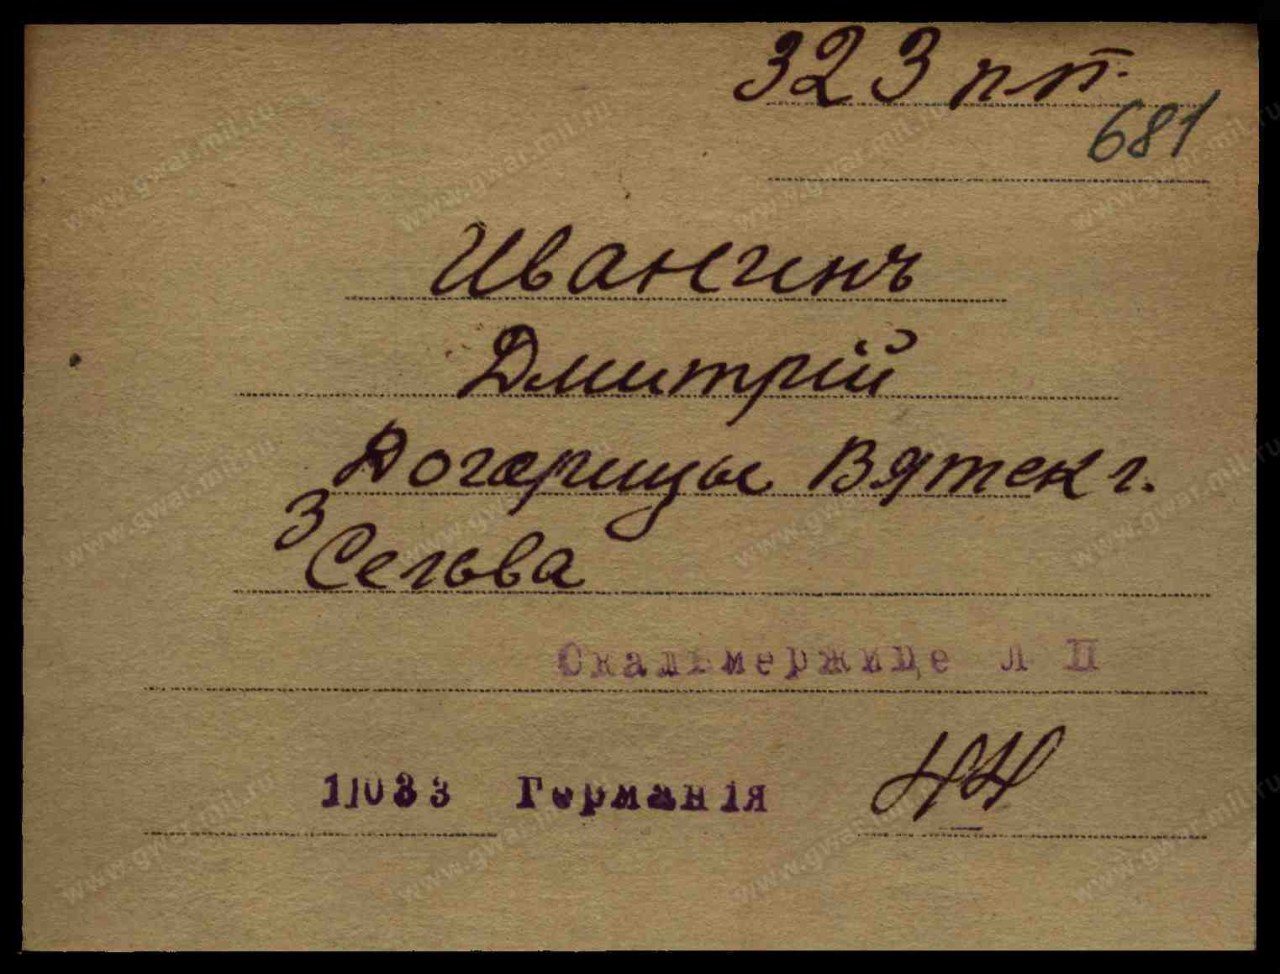 323 пп.
681
Ивангинъ
Дмитрій
Догарицы Вятск г.
3
Сегьва
Скальмержице Л П
11033 Германія
www.gwar.mil.ru